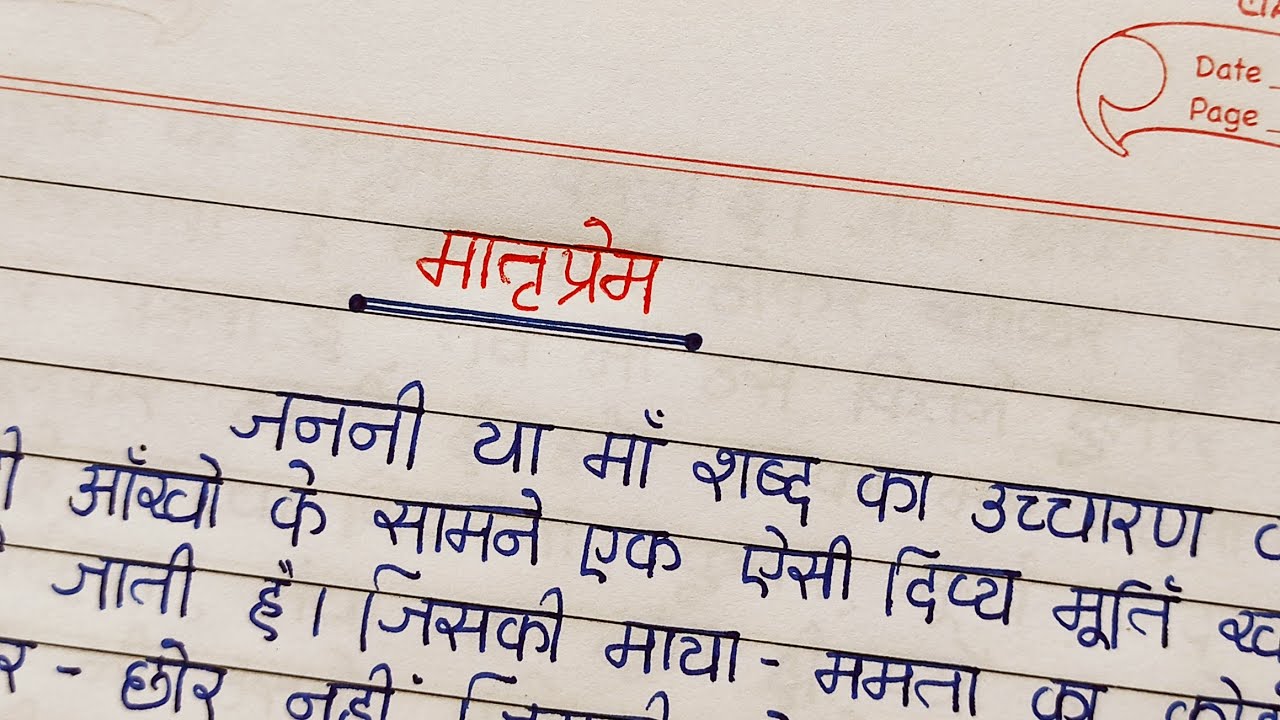 Date
Page
मातृप्रेम
जननी या माँ शब्द का उच्चारण
आँखो के सामने एक ऐसी दिव्य मूर्ति
जाती है। जिसकी माया - ममता का
- छोर नहीं